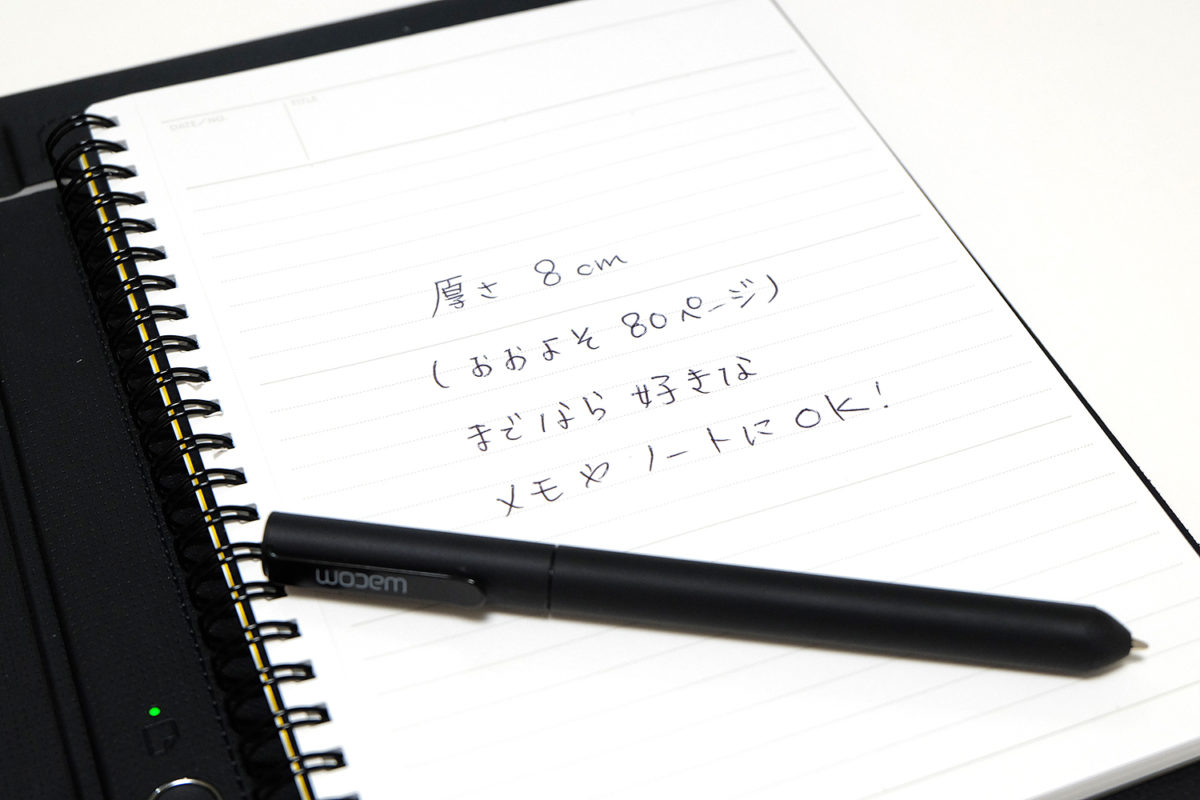 DATE/NO.
TITLE
厚さ 8cm
(おおよそ 80ページ)
までなら 好きな
メモや ノートに OK!
wacom